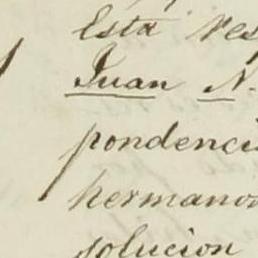 Esta res
Juan N.
pondencia
hermanos
solucion